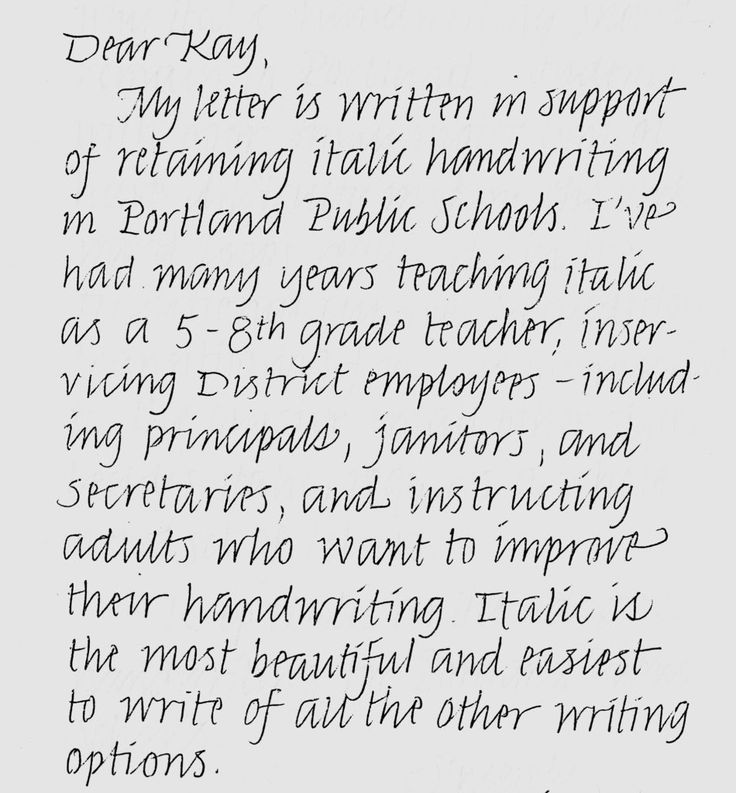 Dear Kay,
My letter is written in support
of retaining italic handwriting
in Portland Public Schools. I've
had many years teaching italic
as a 5-8th grade teacher, inser-
vicing District employees - includ-
ing principals, janitors, and
secretaries, and instructing
adults who want to improve
their handwriting. Italic is
the most beautiful and easiest
to write of all the other writing
options.